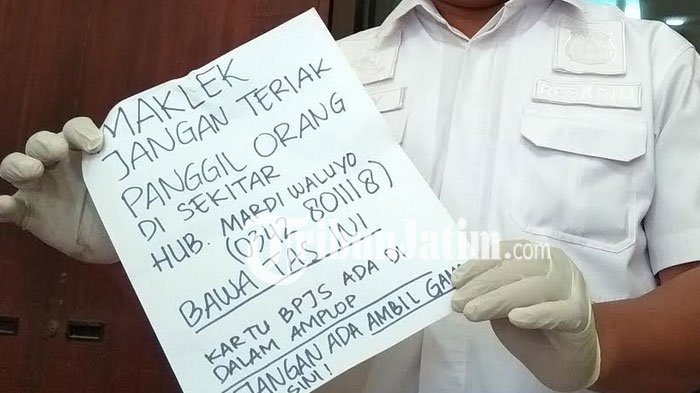 MAKLEK
JANGAN TERIAK
PANGGIL ORANG
DI SEKITAR
HUB. MARDI WALUYO
(0342 801118)
BAWA TAS INI
KARTU BPJS ADA DI
DALAM AMPLOP
JANGAN ADA AMBIL
SINI!
RESKRIM
TribunJatim.com